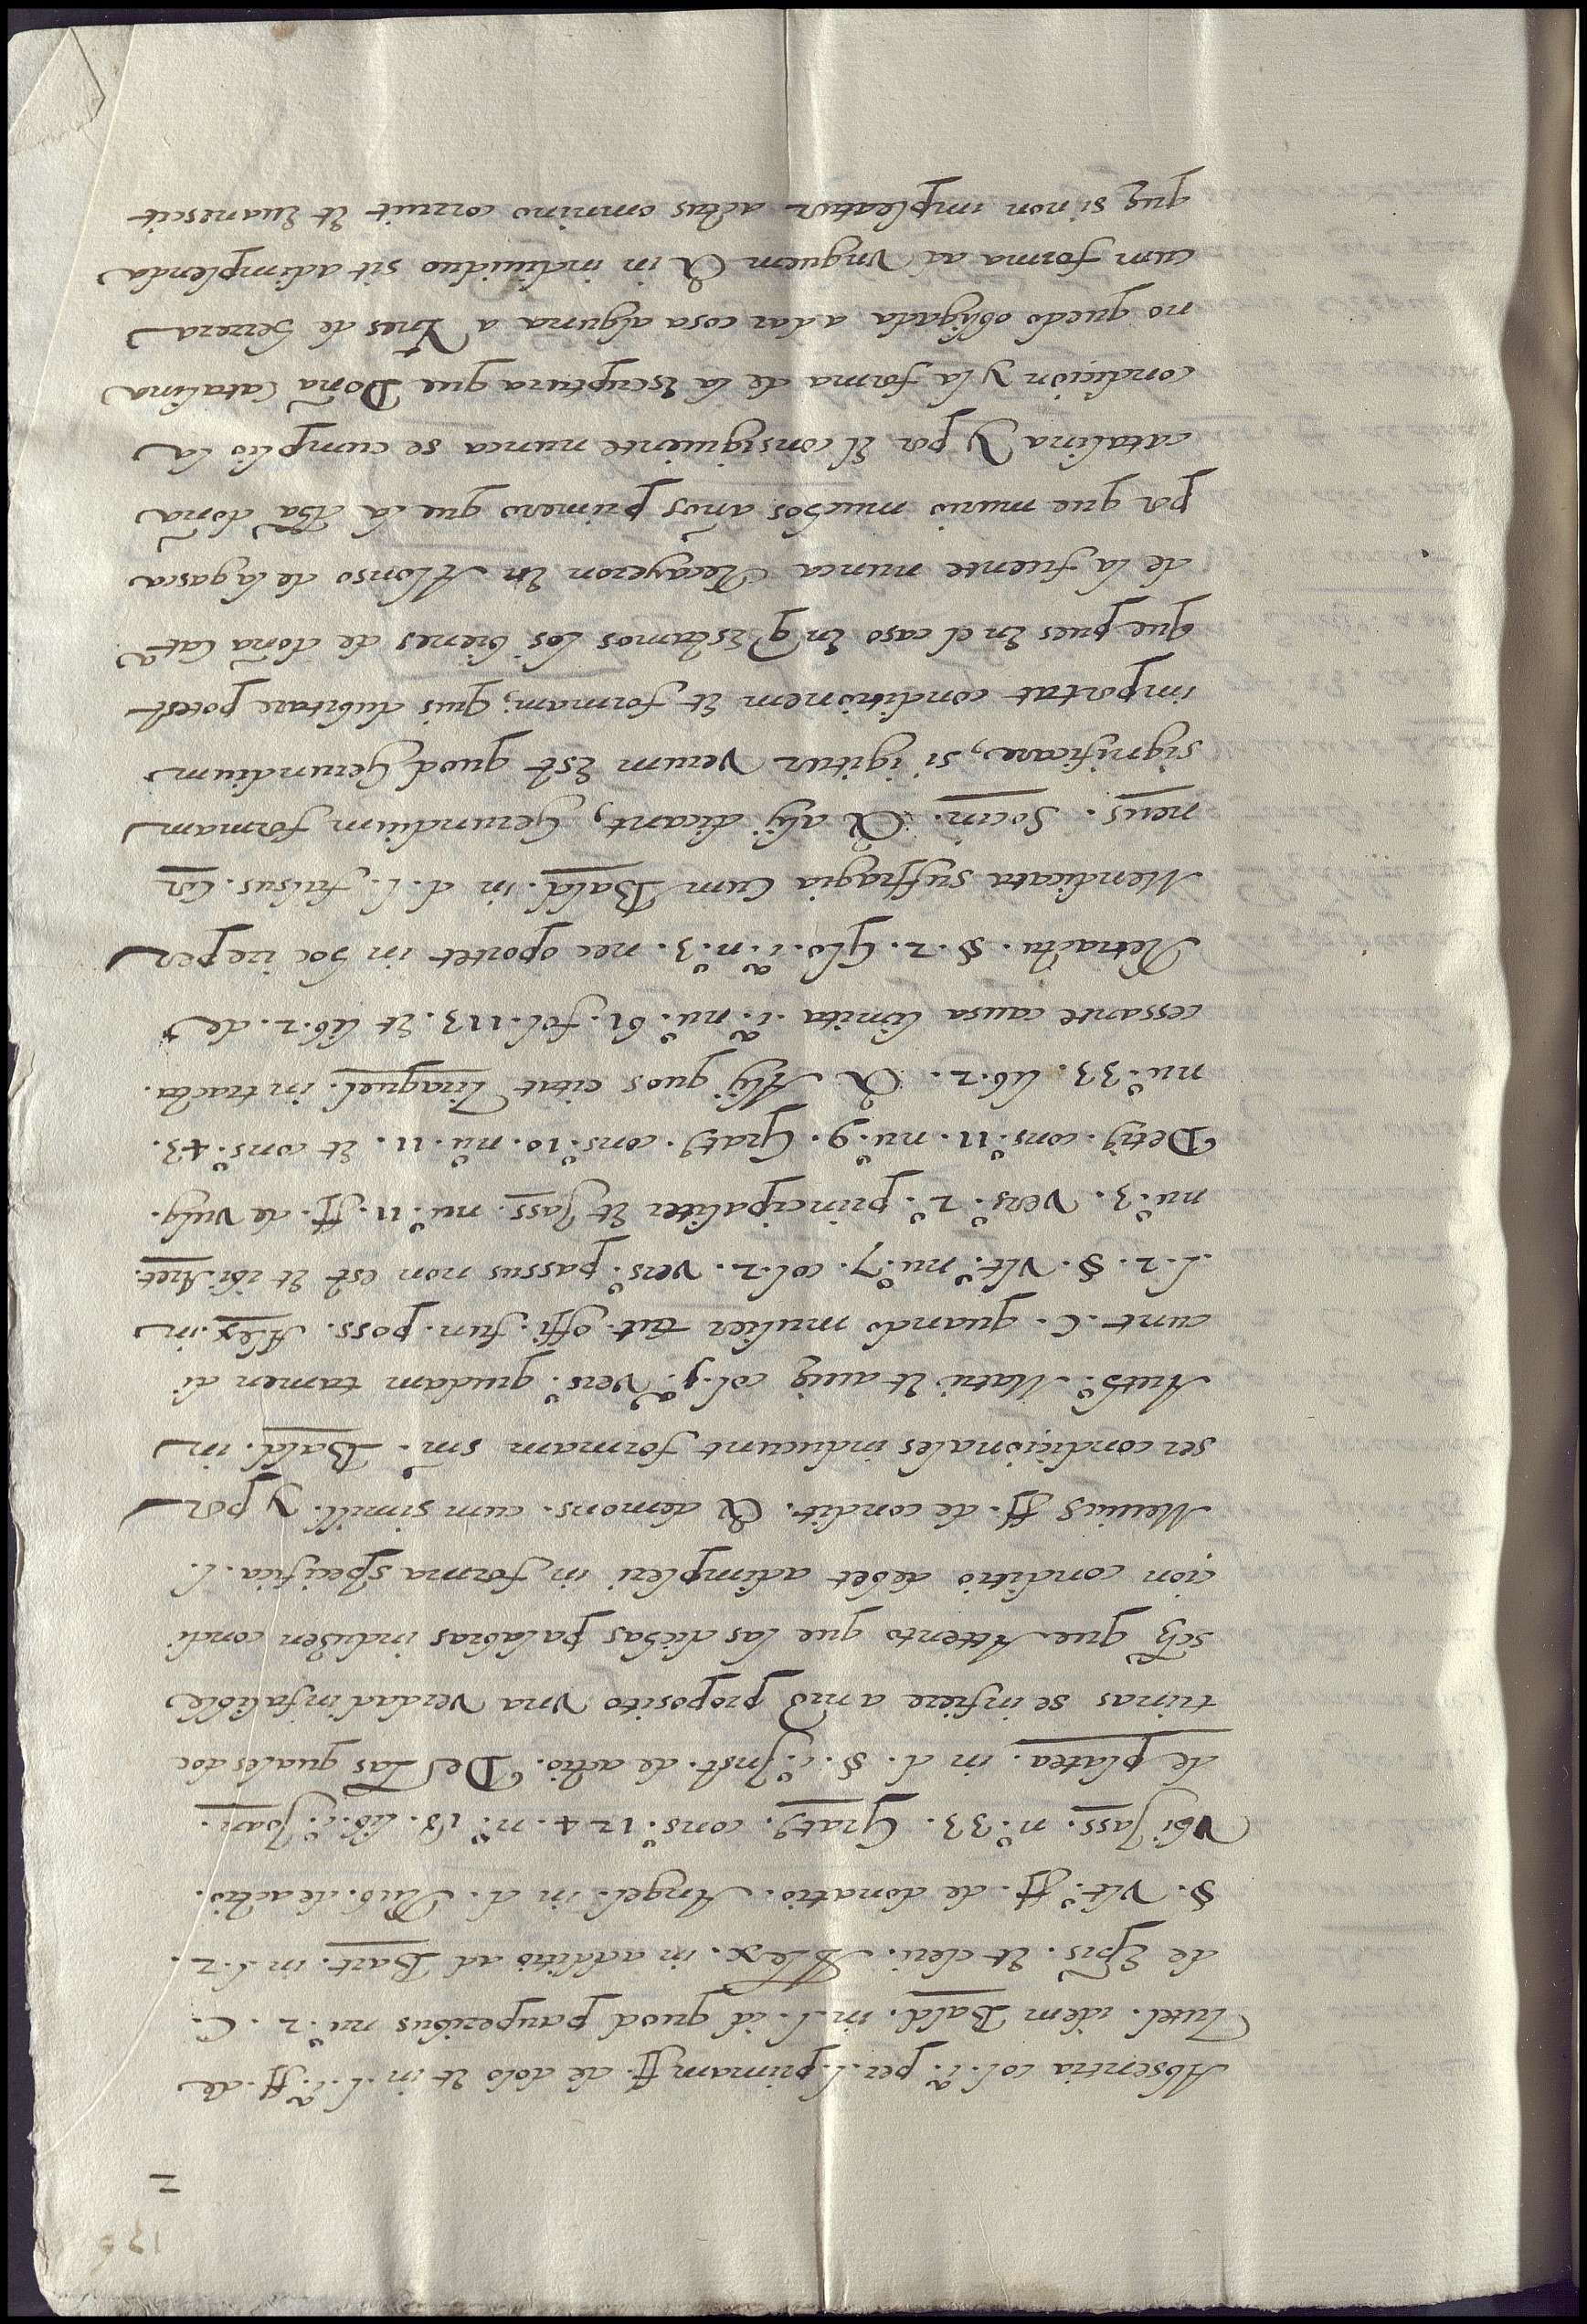 136
2
Absentia col. i.ª per. l. primam ff. de dolo et in. l. i.ª ff. de
Tutel. idem Bald. in. l. id quod pauperibus nu.º 2. C.
de Epīs. Et cleri. Alex. in additio ad Bart. in. l. 2.
§. Vlt.º ff. de donatio. Angel. in d. l. Rub. de actio.
Vbi Jass. n.º 33. Grat9. cons.º 124. n.º 18 lib. i.º Joan.
de platea. in d. §. i.º Inst. de actio. De Las quales doc
trinas se infiere a nrō proposito vna verdad infalible
scz̄ que Attento que las dichas palabras induzen condi
cion conditio debet adimpleri in forma specifica. l.
Meuius ff. de condit. & demons. cum simill. y por
ser condiçionales inducunt formam sm̄. Bald. in
Auth.º Matri Et auię col. 9.ª vers.º quidam tamen di
cunt. C. quando mulier tut. offi. fun. poss. Alex. in
l. 2. §. Vlt.º nu.º 7. col. 2. vers.º passus non est Et ibi Aret.
nu.º 3. vers.º 2.º principaliter Et Jass. nu.º 11. ff. de vulg.
Detį. cons.º 11. nu.º 9. Grat9. cons.º 10. nu.º 11. Et cons.º 43.
nu.º 33. lib. 2. & Alij quos citat Tiraquel. in tracta.
cessante causa limita. i.ª nu.º 61. fol. 113. Et lib. 2. de
Retractu. §. 2. Glo. i.ª n.º 3. nec oportet in hoc ire per
Mendicata suffragia Cum Bald. in d. l. falsus. Cor
neus. Socin. & alij dicant, Gerundium formam
significare, si igitur verum Est quod Gerundium
importat conditionem Et formam; quis dubitare potest
que pues En el caso En q̄ Estamos los bienes de doña Catª
de la fuente nunca Recayeron En Alonso de la gasca
por que murio muchos años primero que la dha doña
catalina y por El consiguiente nunca se cumplio la
condiçion y la forma de la Escriptura que Doña Catalina
no quedo obligada a dar cosa alguna a Ynes de herrera
cum forma ad vnguem & in indiuiduo sit adimplenda
quę si non impleatur actus omnino corruit Et Euanescit